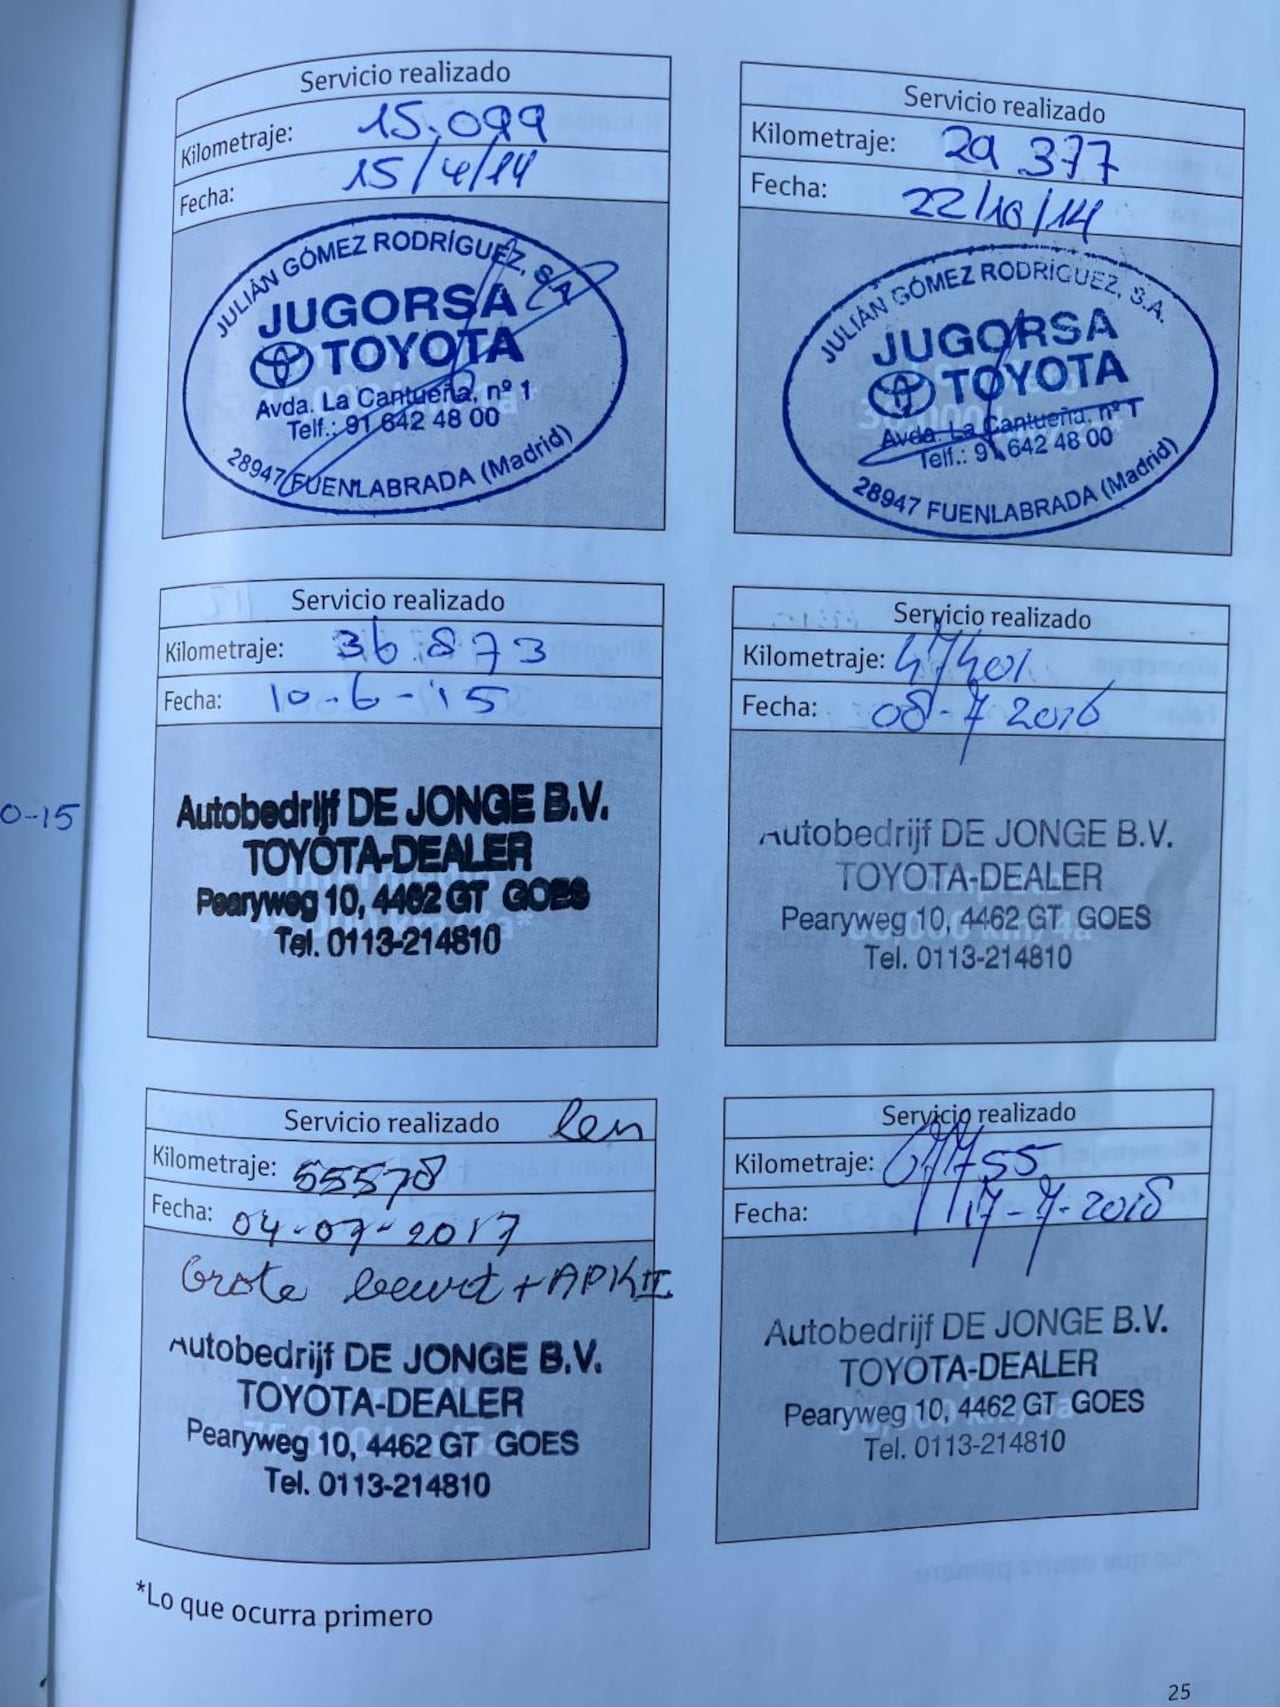 Servicio realizado
Kilometraje: 15.099
Fecha: 15/4/14
JULIÁN GÓMEZ RODRÍGUEZ, S.A.
JUGORSA
TOYOTA
Avda. La Cantueña, nº 1
Telf.: 91 642 48 00
28947 FUENLABRADA (Madrid)
Servicio realizado
Kilometraje: 29.377
Fecha: 22/10/14
JULIÁN GÓMEZ RODRÍGUEZ, S.A.
JUGORSA
TOYOTA
Avda. La Cantueña, nº 1
Telf.: 91 642 48 00
28947 FUENLABRADA (Madrid)
Servicio realizado
Kilometraje: 36.873
Fecha: 10-6-'15
0-15
Autobedrijf DE JONGE B.V.
TOYOTA-DEALER
Pearyweg 10, 4462 GT GOES
Tel. 0113-214810
Servicio realizado
Kilometraje: 47401
Fecha: 08-7 2016
Autobedrijf DE JONGE B.V.
TOYOTA-DEALER
Pearyweg 10, 4462 GT GOES
Tel. 0113-214810
Servicio realizado
Kilometraje: 55578
Fecha: 04-07-2017
Grote beurt + APK II
Autobedrijf DE JONGE B.V.
TOYOTA-DEALER
Pearyweg 10, 4462 GT GOES
Tel. 0113-214810
Servicio realizado
Kilometraje: 67755
Fecha: 17-7-2018
Autobedrijf DE JONGE B.V.
TOYOTA-DEALER
Pearyweg 10, 4462 GT GOES
Tel. 0113-214810
*Lo que ocurra primero
25